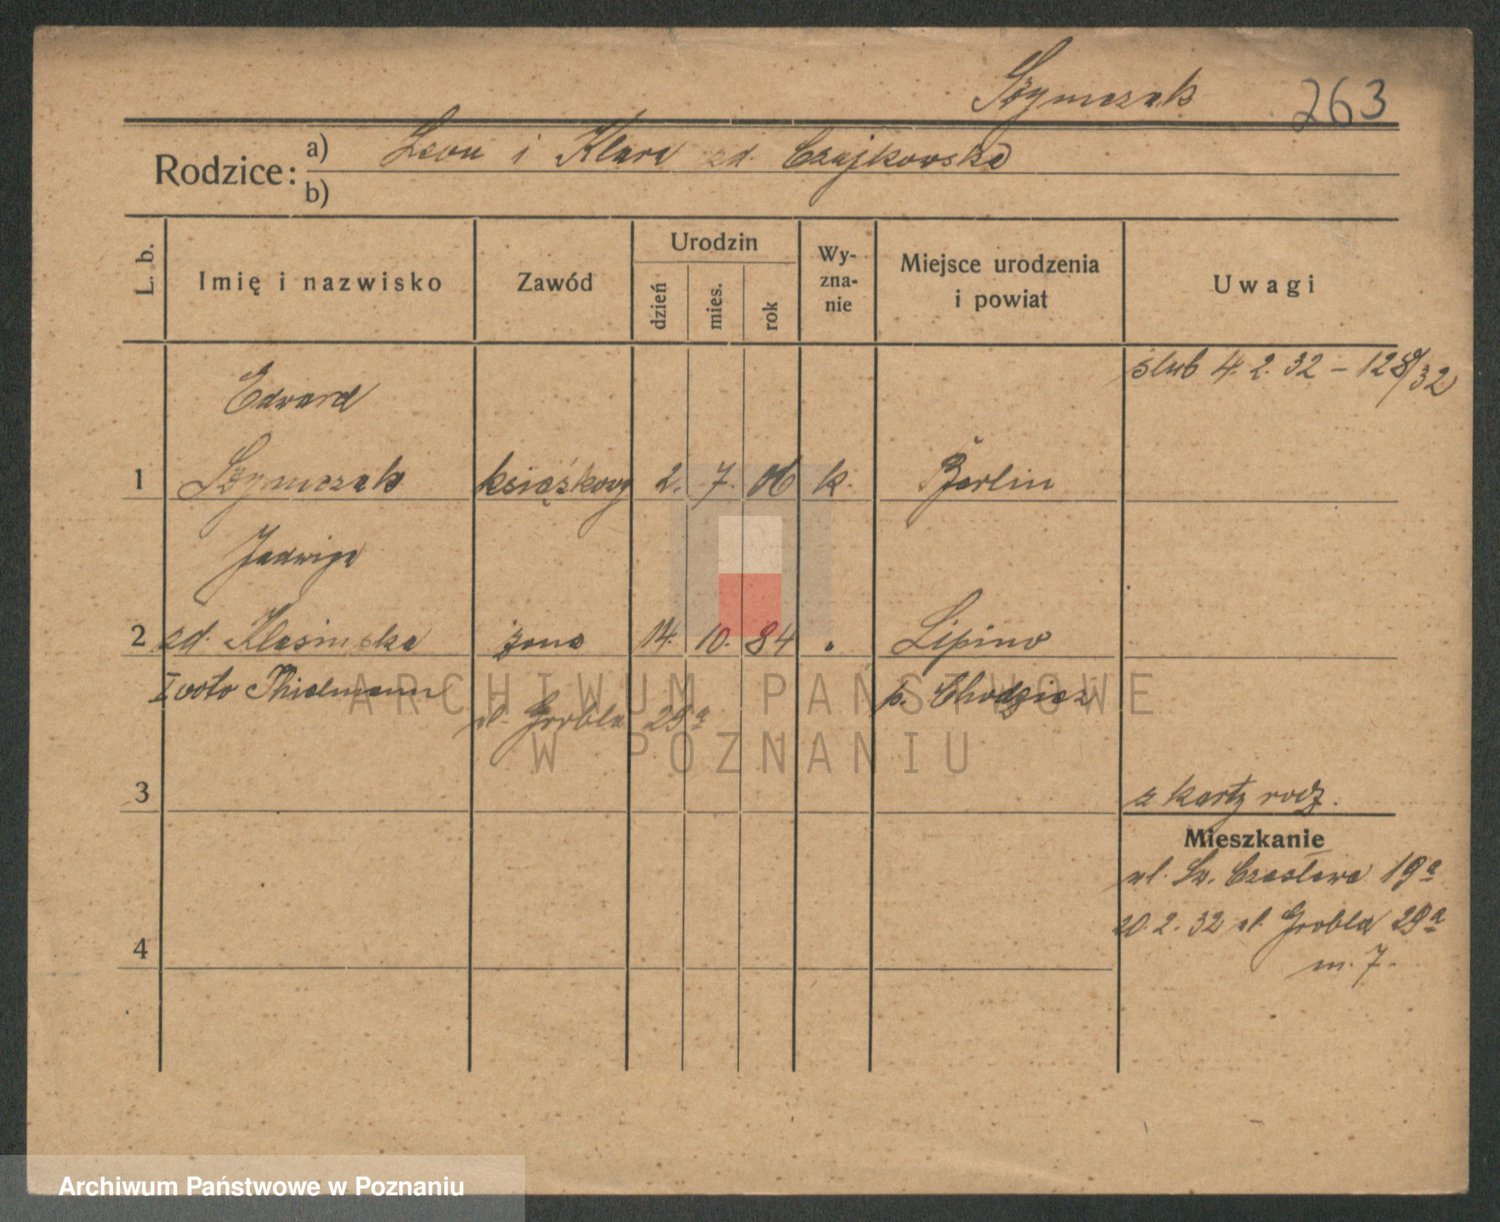 Szymczak 263
Rodzice: a) Leon i Klara zd. Czajkowska
b)
L. b. Imię i nazwisko Zawód Urodzin dzień mies. rok Wy-zna-nie Miejsce urodzenia i powiat Uwagi
ślub 4. 2. 32 – 128/32
Edward
1 Szymczak książkowy 2. 7. 06 k. Berlin
Jadwiga
2 zd. Klasinska żona 14. 10. 84 " Lipino
I voto Thielmann p. Chodzież
ul. Grobla 29a
ARCHIWUM PAŃSTWOWE
W POZNANIU
3 z karty rodz.
Mieszkanie
ul. Św. Czesława 19a
20. 2. 32 ul. Grobla 29a
4 m. 7.
Archiwum Państwowe w Poznaniu